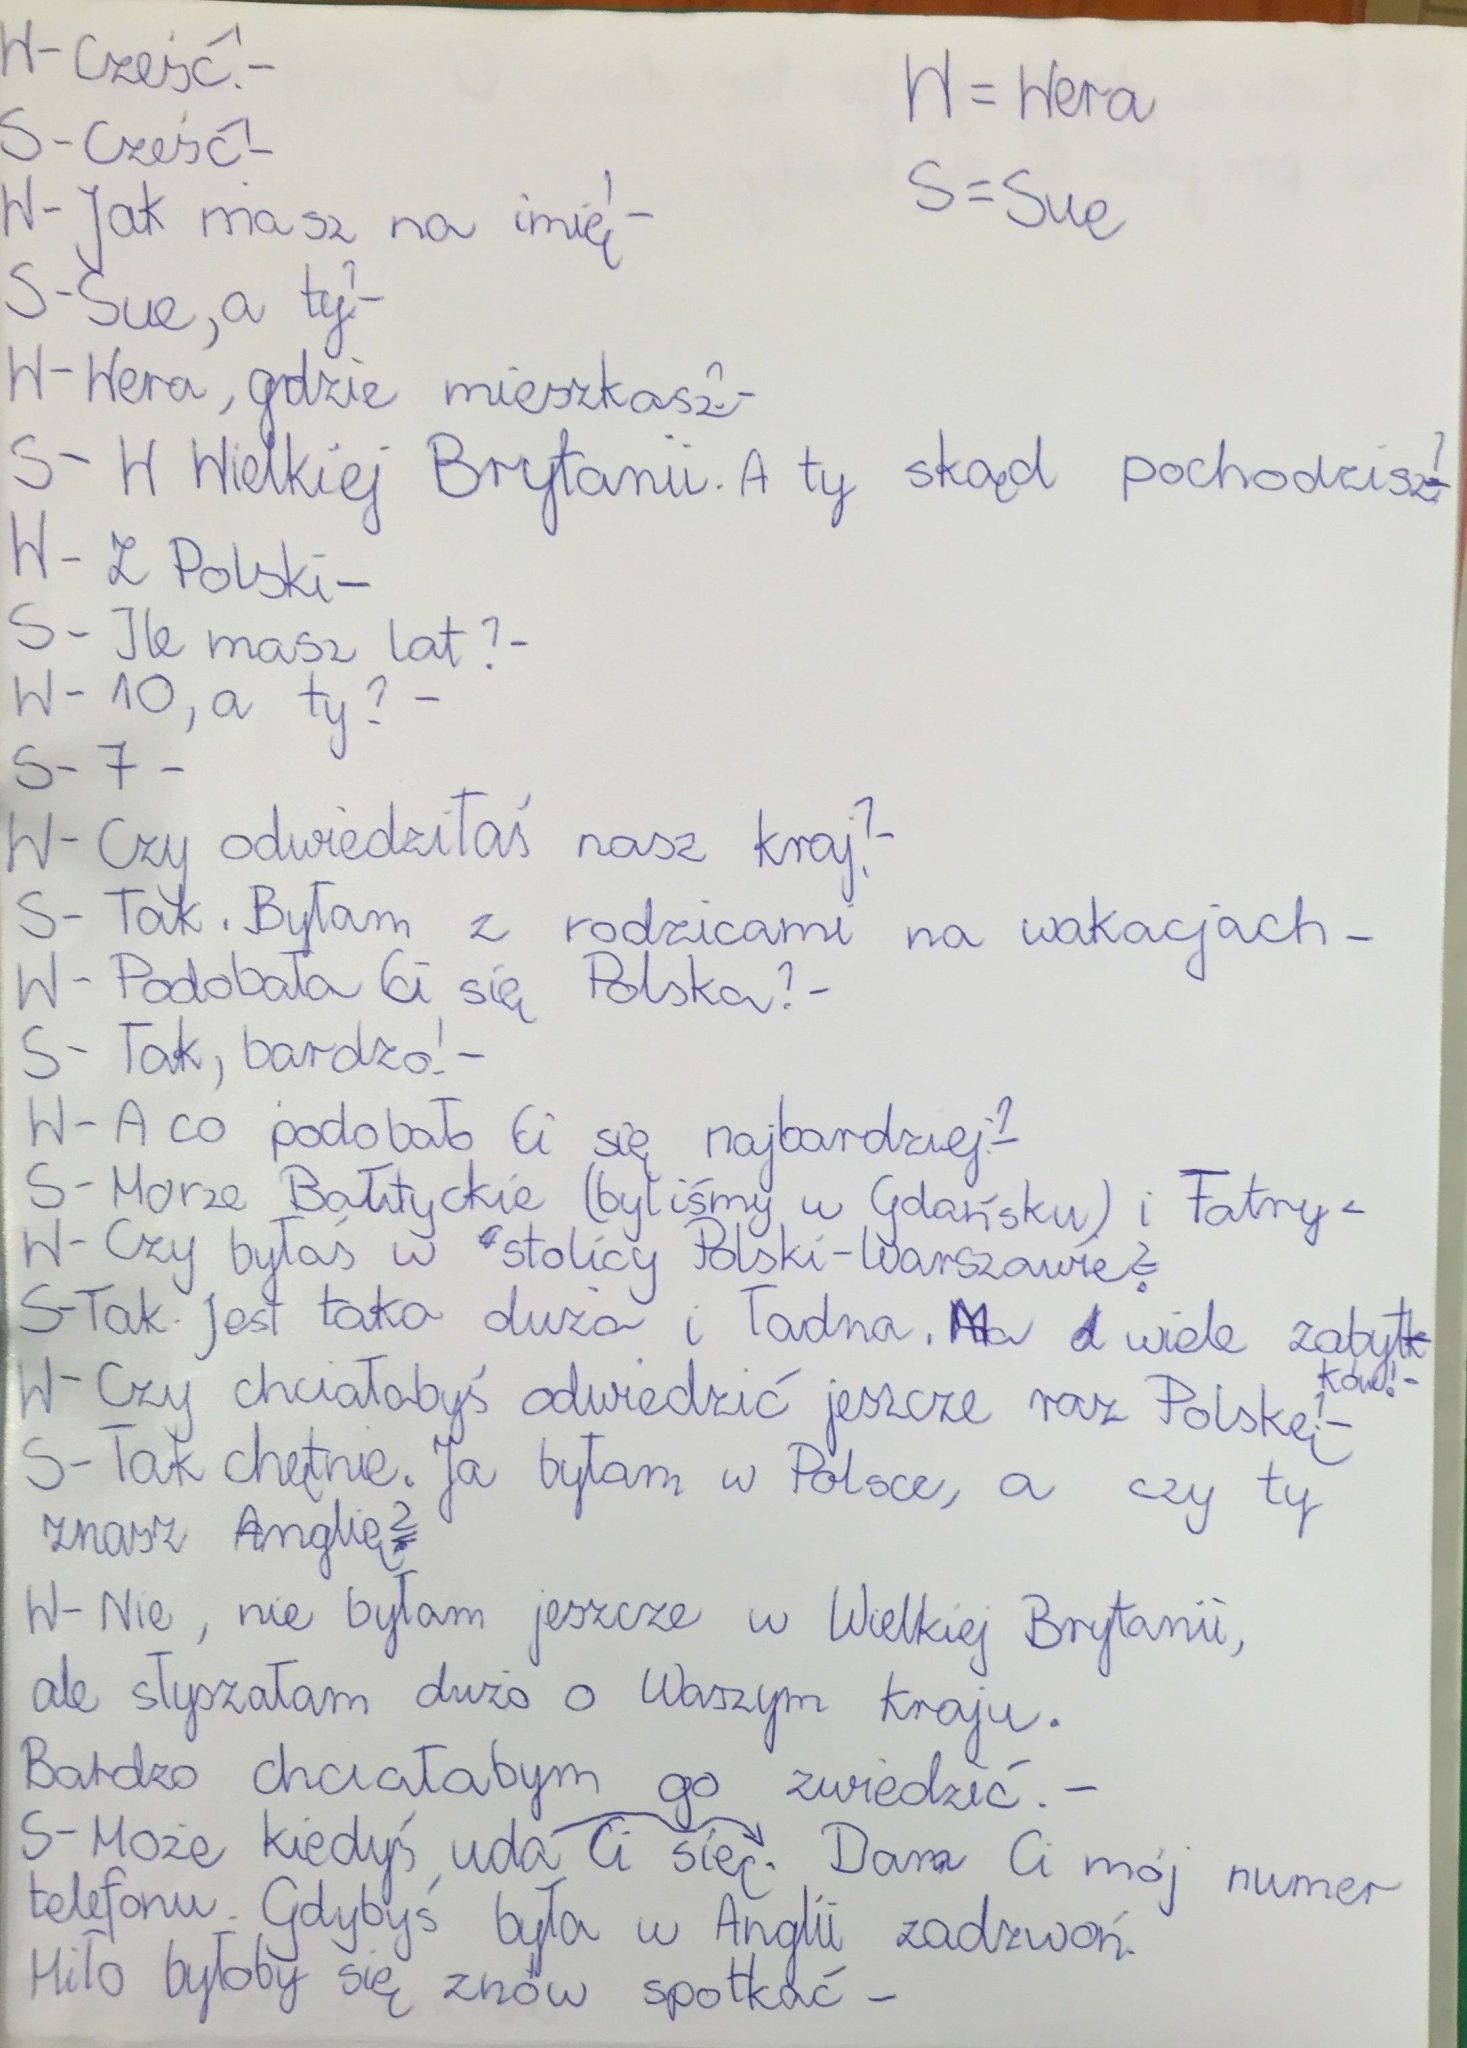 W- Cześć!-
W = Wera
S- Cześć!-
S = Sue
W- Jak masz na imię!-
S- Sue, a ty?-
W- Wera, gdzie mieszkasz?-
S- W Wielkiej Brytanii. A ty skąd pochodzisz?-
W- Z Polski-
S- Ile masz lat?-
W- 10, a ty? -
S- 7 -
W- Czy odwiedziłaś nasz kraj?-
S- Tak. Byłam z rodzicami na wakacjach-
W- Podobała Ci się Polska?-
S- Tak, bardzo!-
W- A co podobało Ci się najbardziej?-
S- Morze Bałtyckie (byliśmy w Gdańsku) i Tatry-
W- Czy byłaś w stolicy Polski-Warszawie?-
S- Tak. Jest taka duża i ładna. Ma wiele zabyt-
ków!-
W- Czy chciałabyś odwiedzić jeszcze raz Polskę?-
S- Tak chętnie. Ja byłam w Polsce, a czy ty
znasz Anglię?-
W- Nie, nie byłam jeszcze w Wielkiej Brytanii,
ale słyszałam dużo o Waszym kraju.
Bardzo chciałabym go zwiedzić. -
S- Może kiedyś uda Ci się. Dam Ci mój numer
telefonu. Gdybyś była w Anglii zadzwoń.
Miło byłoby się znów spotkać -